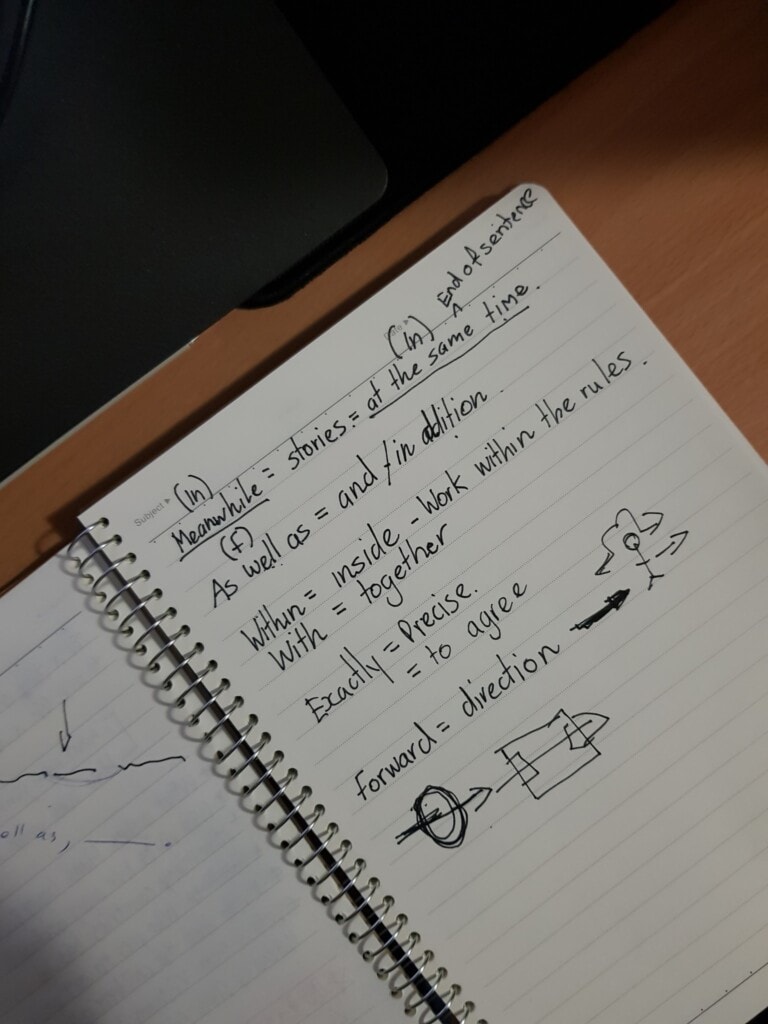 End of sentence
(In) ^
Subject (In)
Meanwhile = stories = at the same time.
(F)
As well as = and / in addition.
Within = inside - Work within the rules.
With = together
Exactly = Precise.
= to agree
Forward = direction
as,